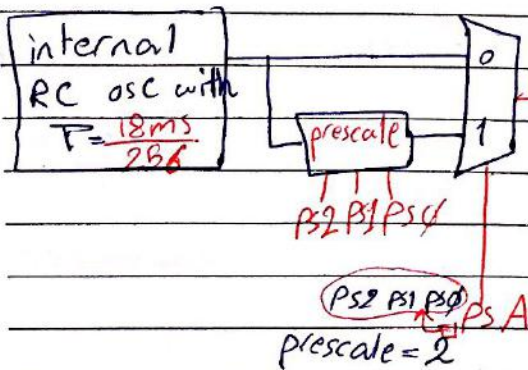 internal
RC osc with
T = 18ms
256
0
prescale
1
PS2 PS1 PS0
PS2 PS1 PS0
PSA
prescale = 2